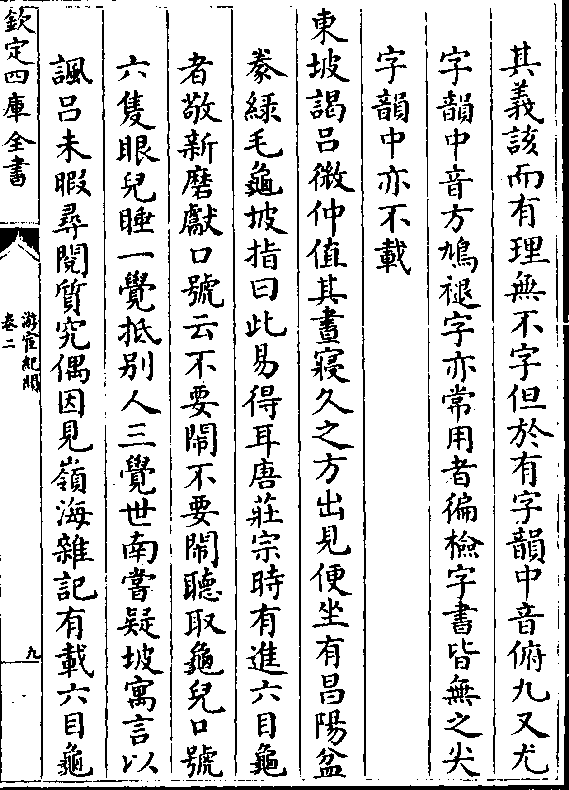 其義該而有理無不字但於有字韻中音俯九又尤
字韻中音方鳩褪字亦常用者徧檢字書皆無之尖
字韻中亦不載
東坡謁吕微仲值其晝寢久之方出見便坐有昌陽盆
豢緑毛龜坡指曰此易得耳唐莊宗時有進六目龜
者敬新磨獻口號云不要鬧不要鬧聽取龜兒口號
六隻眼兒睡一覺抵别人三覺世南嘗疑坡寓言以
諷吕未暇尋閱質究偶因見嶺海雜記有載六目龜
欽定四庫全書
游宦紀聞
卷二
九